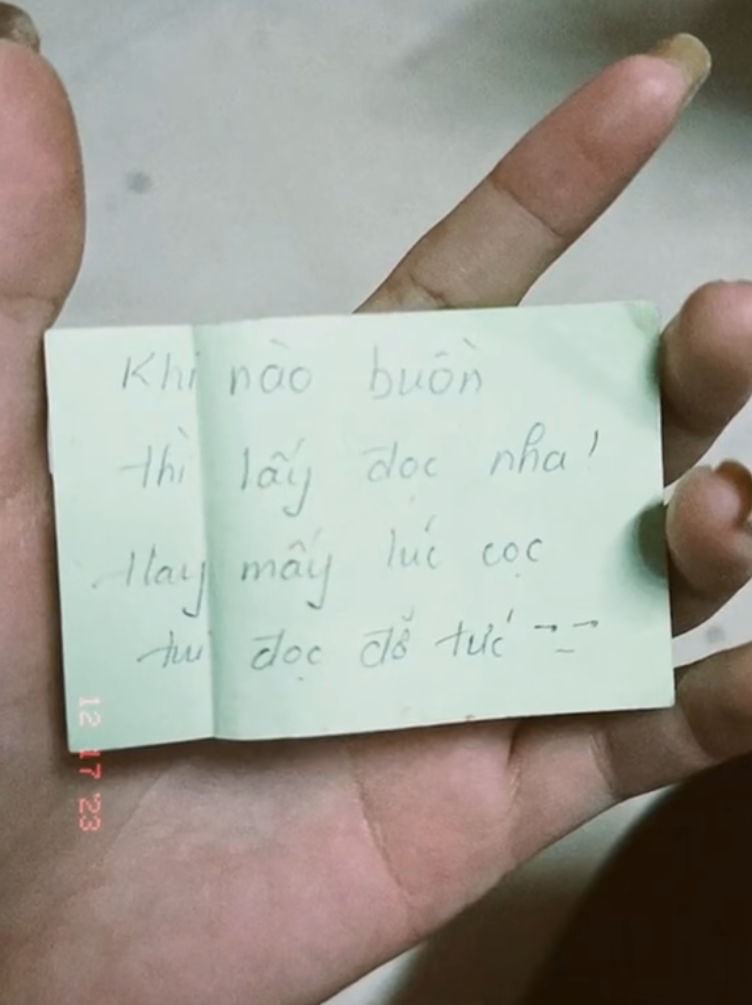 Khi nào buồn
thì lấy đọc nha!
Hay mấy lúc cọc
tui đọc đỡ tức →_→
12 17 '23